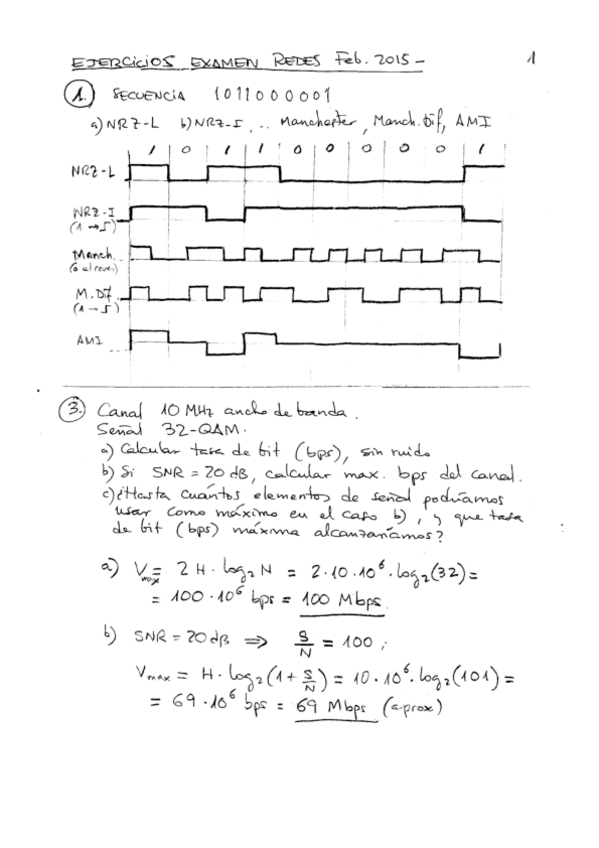 EJERCICIOS EXAMEN REDES Feb. 2015 - 1
1. SECUENCIA 1011000001
a) NRZ-L b) NRZ-I, .. Manchester, Manch. Dif, AMI
1 0 1 1 0 0 0 0 0 1
NRZ-L
NRZ-I
(1 →
Manch.
(ó al revés)
M. Dif.
(1 →
AMI
3. Canal 10 MHz ancho de banda.
Señal 32-QAM.
a) Calcular tasa de bit (bps), sin ruido
b) Si SNR = 20 dB, calcular max. bps del canal.
c) ¿Hasta cuántos elementos de señal podríamos
usar como máximo en el caso b), y que tasa
de bit (bps) máxima alcanzaríamos?
a) Vmax = 2H · log₂ N = 2·10·10⁶·log₂(32) =
= 100·10⁶ bps = 100 Mbps.
b) SNR = 20 dB ⇒ S/N = 100 ;
Vmax = H · log₂(1 + S/N) = 10·10⁶·log₂(101) =
= 69·10⁶ bps = 69 Mbps (aprox)